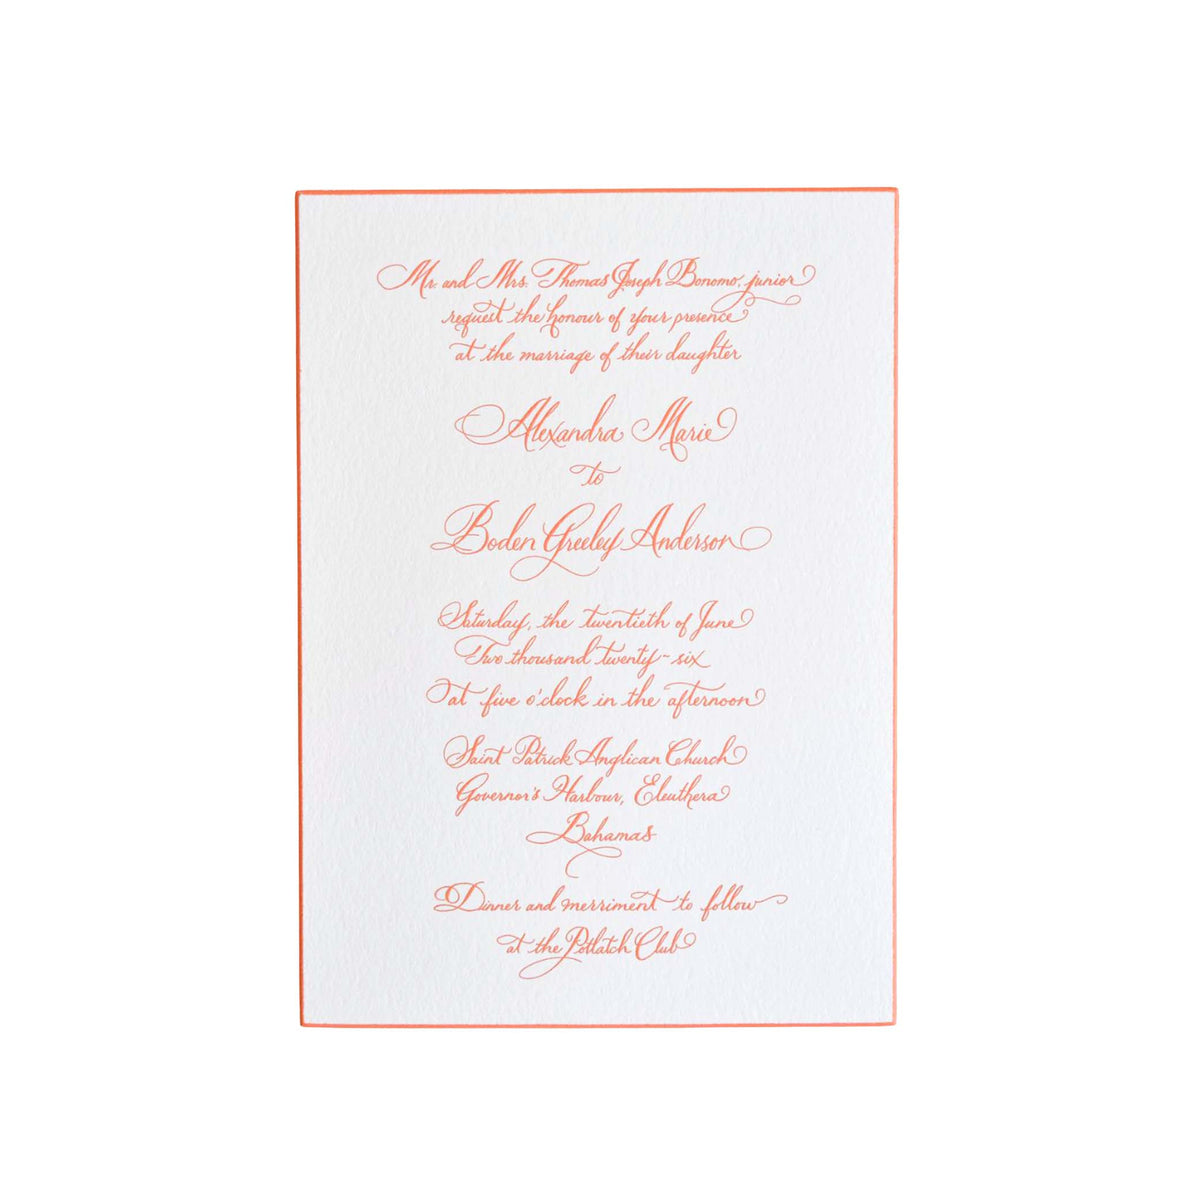 Mr. and Mrs. Thomas Joseph Bonomo, junior
request the honour of your presence
at the marriage of their daughter
Alexandra Marie
to
Boden Greeley Anderson
Saturday, the twentieth of June
Two thousand twenty-six
at five o'clock in the afternoon
Saint Patrick Anglican Church
Governor's Harbour, Eleuthera
Bahamas
Dinner and merriment to follow
at the Potlatch Club